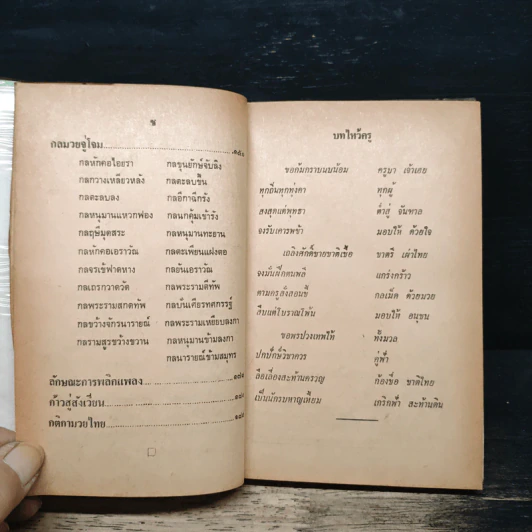 ช
กลมวยจู่โจม
กลหักคอไอยรา กลขุนยักษ์จับลิง
กลกวางเหลียวหลัง กลตะลบขึ้น
กลตะลบลง กลอีกาฉีกรัง
กลหนุมานแหวกฟอง กลนกคุ้มเข้ารัง
กลฤษีมุดสระ กลหนุมานทะยาน
กลหักคอเอราวัณ กลตะเพียนแฝงตอ
กลจรเข้ฟาดหาง กลยันเอราวัณ
กลเถรกวาดวัด กลพระรามตีทัพ
กลพระรามสกดทัพ กลบั่นเศียรทศกรรฐ์
กลขว้างจักรนารายณ์ กลพระรามเหยียบลงกา
กลรามสูรขว้างขวาน กลหนุมานข้ามลงกา
กลนารายณ์ข้ามสมุทร
ลักษณะการพลิกแพลง
ก้าวสู่สังเวียน
กติกามวยไทย
บทไหว้ครู
ขอก้มกราบนบน้อม ครูบา เจ้าเอย
ทุกถิ่นทุกทุ่งค้า ทุกผู้
องสุดแต่พุทธา ต่ำสู่ จันฑาล
จงรับเคารพข้า มอบให้ ด้วยใจ
เถลิงศักดิ์ชายชาติเชื้อ ชาตรี เผ่าไทย
จงมั่นฝึกตนพลี แกร่งกร้าว
ตามครู กลเม็ด ด้วยมวย
สืบแต่โบราณโพ้น มอบให้ อนุชน
ขอพรปวงเทพไท้ ทั้งมวล
ปกปักษ์ คู่ฟ้า
ลือเลื่องสะท้าน ก้องชื่อ ชาติไทย
เป็นนักรบหาญเทียม เกริกฟ้า สะท้านดิน